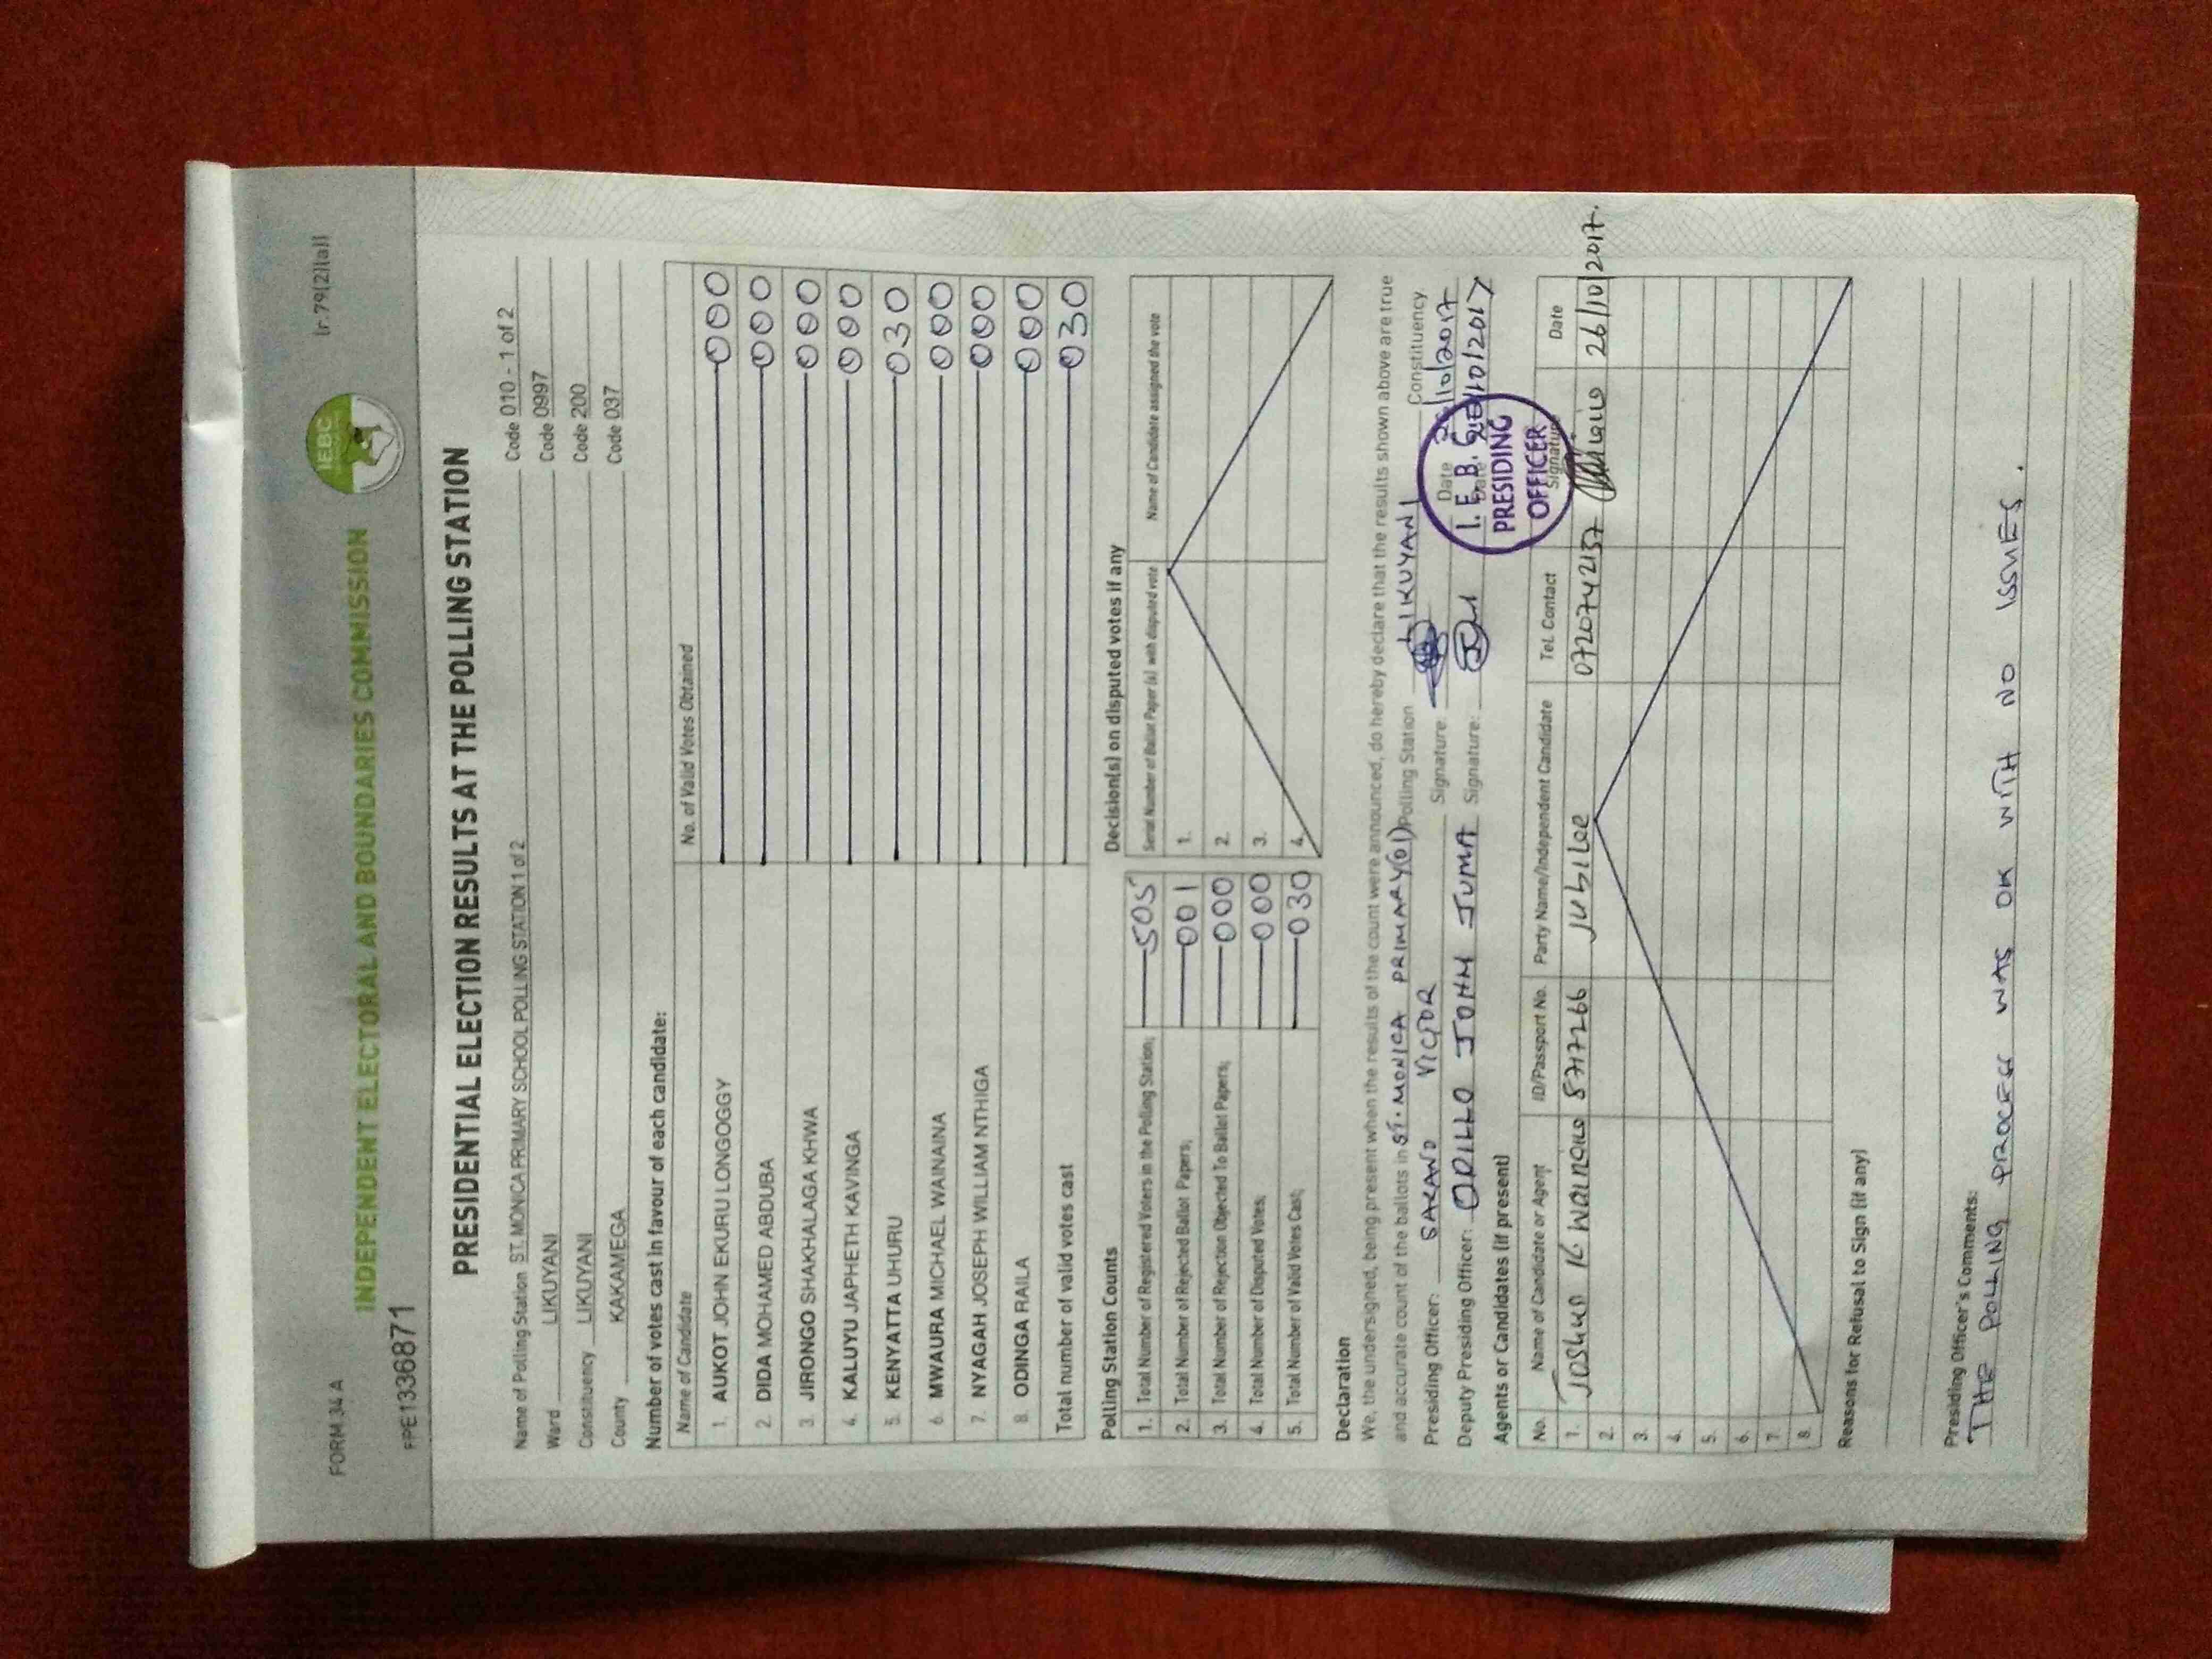 FORM 34 A
(r.79(2)(a))
INDEPENDENT ELECTORAL AND BOUNDARIES COMMISSION
IEBC
FPE1336871
PRESIDENTIAL ELECTION RESULTS AT THE POLLING STATION
Name of Polling Station ST. MONICA PRIMARY SCHOOL POLLING STATION 1 of 2 Code 010 - 1 of 2
Ward LIKUYANI Code 0997
Constituency LIKUYANI Code 200
County KAKAMEGA Code 037
Number of votes cast in favour of each candidate:
Name of Candidate No. of Valid Votes Obtained
1. AUKOT JOHN EKURU LONGOGGY 000
2. DIDA MOHAMED ABDUBA 000
3. JIRONGO SHAKHALAGA KHWA 000
4. KALUYU JAPHETH KAVINGA 000
5. KENYATTA UHURU 030
6. MWAURA MICHAEL WAINAINA 000
7. NYAGAH JOSEPH WILLIAM NTHIGA 000
8. ODINGA RAILA 000
Total number of valid votes cast 030
Polling Station Counts
1. Total Number of Registered Voters in the Polling Station; 505
2. Total Number of Rejected Ballot Papers; 001
3. Total Number of Rejection Objected To Ballot Papers; 000
4. Total Number of Disputed Votes; 000
5. Total Number of Valid Votes Cast; 030
Decision(s) on disputed votes if any
Serial Number of Ballot Paper (s) with disputed vote Name of Candidate assigned the vote
1.
2.
3.
4.
Declaration
We, the undersigned, being present when the results of the count were announced, do hereby declare that the results shown above are true
and accurate count of the ballots in ST. MONICA PRIMARY (01) Polling Station LIKUYANI Constituency
Presiding Officer: SAKAND VICTOR Signature: Date 26/10/2017
Deputy Presiding Officer: ODILLO JOHN JUMA Signature: Date 26/10/2017
I. E. B. C
PRESIDING
OFFICER
Agents or Candidates (if present)
No. Name of Candidate or Agent ID/Passport No. Party Name/Independent Candidate Tel. Contact Signature Date
1. Joshua K. Wainaina 8717266 Jubilee 0720742157 26/10/2017.
2.
3.
4.
5.
6.
7.
8.
Reasons for Refusal to Sign (if any)
Presiding Officer's Comments:
THE POLLING PROCESS WAS OK WITH NO ISSUES.